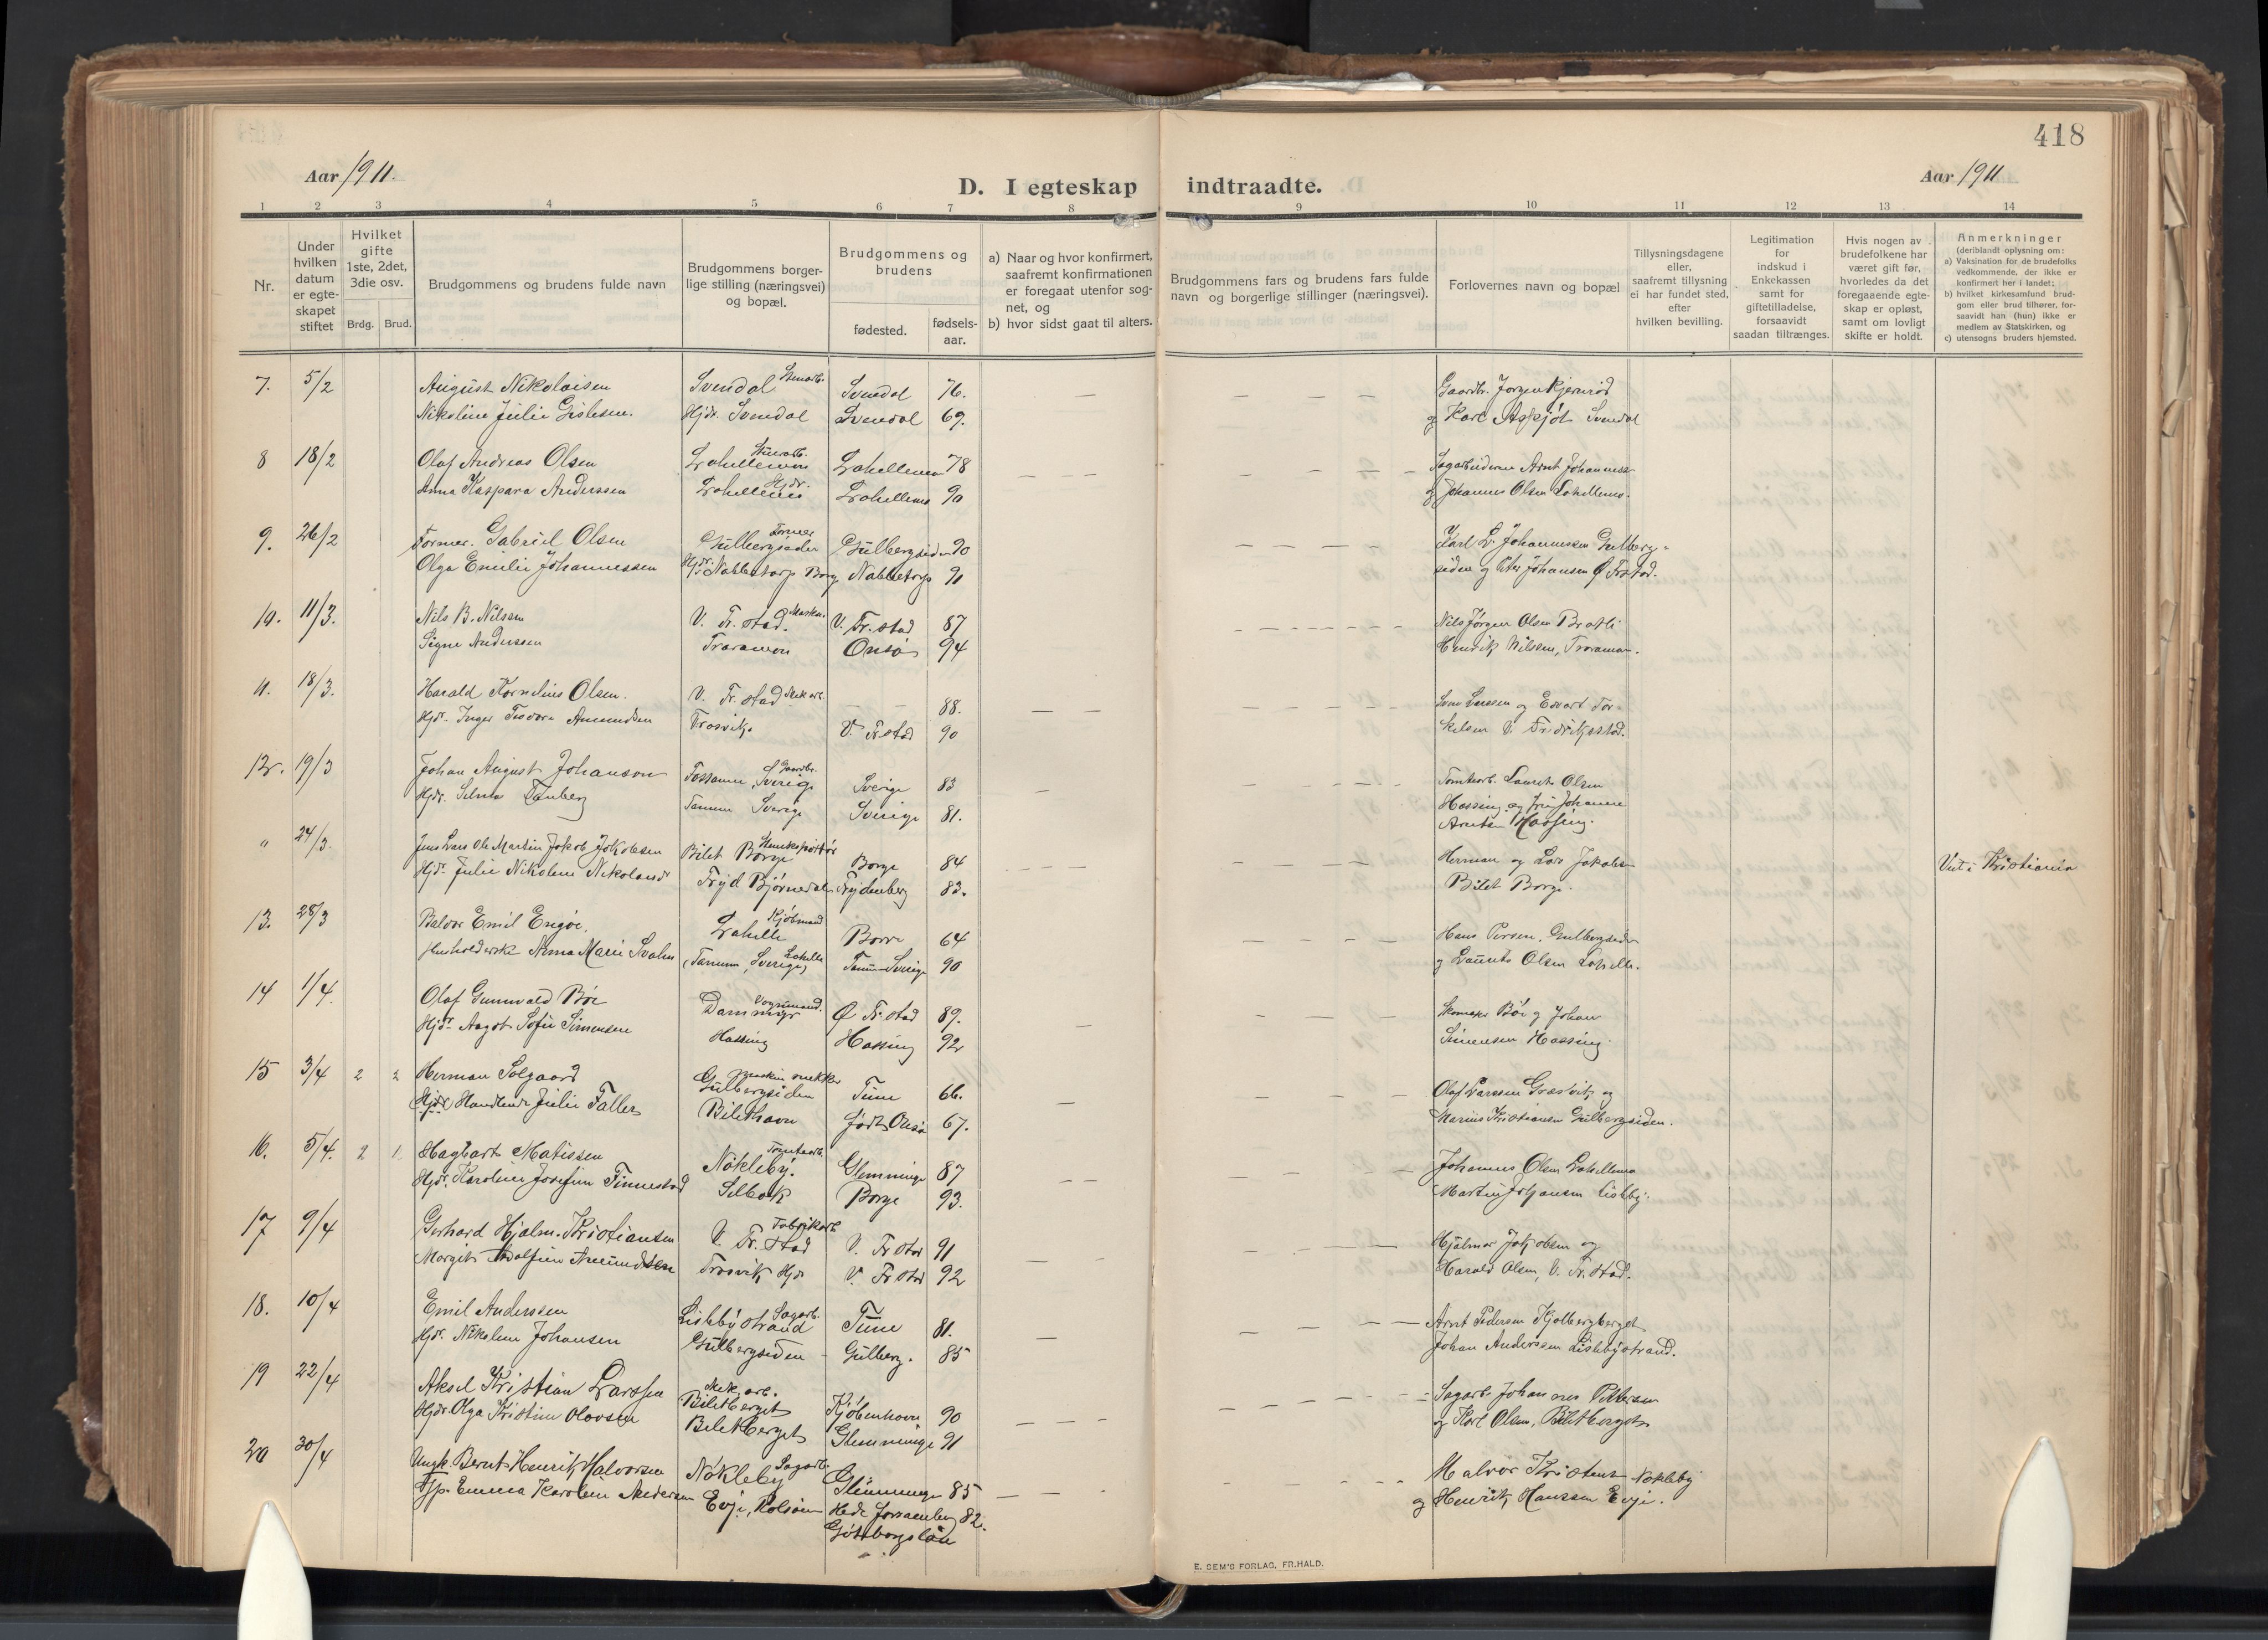 418
Aar 1911.
D. I egteskap indtraadte.
Aar 1911
1 2 3 4 5 6 7 8 9 10 11 12 13 14
Nr.
Under hvilken datum er egteskapet stiftet
Hvilket gifte 1ste, 2det, 3die osv.
Brdg. Brud.
Brudgommens og brudens fulde navn
Brudgommens borgerlige stilling (næringsvei) og bopæl.
Brudgommens og brudens
fødested. fødselsaar.
a) Naar og hvor konfirmert, saafremt konfirmationen er foregaat utenfor sognet, og
b) hvor sidst gaat til alters.
Brudgommens fars og brudens fars fulde navn og borgerlige stillinger (næringsvei).
Forlovernes navn og bopæl
Tillysningsdagene eller, saafremt tillysning ei har fundet sted, efter hvilken bevilling.
Legitimation for indskud i Enkekassen samt for giftetilladelse, forsaavidt saadan tiltrænges.
Hvis nogen av brudefolkene har været gift før, hvorledes da det foregaaende egteskap er opløst, samt om lovligt skifte er holdt.
Anmerkninger
(deriblandt oplysning om:
a) Vaksination for de brudefolks vedkommende, der ikke er konfirmert her i landet;
b) hvilket kirkesamfund brudgom eller brud tilhører, forsaavidt han (hun) ikke er medlem av Statskirken, og
c) utensogns bruders hjemsted.
7. 5/2 August Nikolaisen Svendal Stenarb. Svendal 76. Gaardbr. Jørgen Kjernrød
Nikoline Julie Gislesen. Hjdr. Svendal Svendal 69. og Karl Svendal
8 18/2 Olaf Andreas Olsen Lahellemoen Stenarb. Lahellemoen 78 Sagarbeiderne Arnt Johanness
Anna Kaspara Anderssen Lahellemo Hjdr. Lahellemo 90 og Johannes Olsen Lahellemo.
9. 26/2 Former. Gabriel Olsen Gulbergsiden Former Gulbergsiden 90 Karl L. Johannessen Gulberg-
Olga Emilie Johannessen Hjdr. Nabbetorp Borg Nabbetorp 91 siden og Peter Johansen Ø Frstad.
10. 11/3. Nils B. Nilsen V. Fr.stad. Maskn. V. Fr.stad 87 Nils Jørgen Olsen Bratli
Signe Anderssen Traramoen Onsø 94 Henrik Nilsen, Traramoen.
11. 18/3. Harald Kornelius Olsen. V. Fr.stad Mek arb. 88. Larssen og Edvart Tor-
Hjdr. Inger Teodora Amundsen Trosvik. V. Fr.stad 90 kelsen V. Fredrikstad.
12. 19/3 Johan August Johanson Sverige Gaardbr. Sverige 83 Tomtearb. Laurits Olsen
Hjdr. Selma Tanberg Tanum Sverige Sverige 81. Hassing og fru Johanne
Arntsen Hassing.
" 24/3. Jens Lars Ole Martin Jakob Jakobsen Bilet Borge Borge 84 Herman og Lars Jakobsen Viet i Kristiania
Hjdr. Julie Nikoline Nikolausd Fryd Bjørnedalen Frydenberg 83. Bilet Borge.
13. 28/3 Baldor Emil Engøe. Lahelle Kjøbmand Borre 64 Hans Persen, Gulbergsiden
Husholderske Anna Marie Svahn (Tanum, Sverige) Lahelle Tanum Sverige 90 og Laurits Olsen Lahelle.
14 1/4. Olaf Gunnvald Bøe Dammyr Vognmand. Ø Fr.stad 89. Skomaker Bøe og Johan
Hjdr. Aagot Sofie Simensen Hassing Hassing 92 Simensen Hassing.
15 3/4 2 2 Herman Solgaard Gulbergsiden Maskin snekker Tune 66. Olaf Larssen Græsvik og
(Hjdr.) Handlende Julie Falles Bilethavn født Onsø 67. Marius Kristiansen Gulbergsiden.
16. 5/4. 2 1. Hagbart Matissen Nøkleby. Tomtearb. Glemminge 87 Johannes Olsen Lahellemo
Hjdr. Karoline Josefine Tinnestad Selbak Borge 93. Martin Johansen Lisleby.
17 9/4 Gerhard Hjalm. Kristiansen V. Fr.stad Fabrikarb V. Frstad 91 Hjalmar Jakobsen og
Margit Adolfine Amundsen Trosvik Hjdr V. Frstad 92 Harald Olsen, V. Fr.stad.
18. 10/4 Emil Anderssen Lislebystrand Sagarb. Tune 81. Arnt Pedersen Kjølbergberget
Hjdr. Nikoline Johansen Gulbergsiden Gulberg. 85 Johan Anderssen Lislebystrand.
19 22/4 Aksel Kristian Larssen Mek. arb. Biletberget Kjøbenhavn 90 Sagarb. Johannes Pettersen
Hjdr. Olga Kristine Olavsen Biletberget Glemminge 91 og Karl Olsen, Biletberget
20 30/4 Ungk. Bernt Henrik Halvorsen Nøkleby Sagarb. Glemminge 85 Halvor Kristens Nøkleby
Tjp. Emma Karoline Andersen Evje, Rolsøen Hede 82. og Henrik Hanssen Evje.
Gøteborgslän
E. SEM'S FORLAG, FR.HALD.